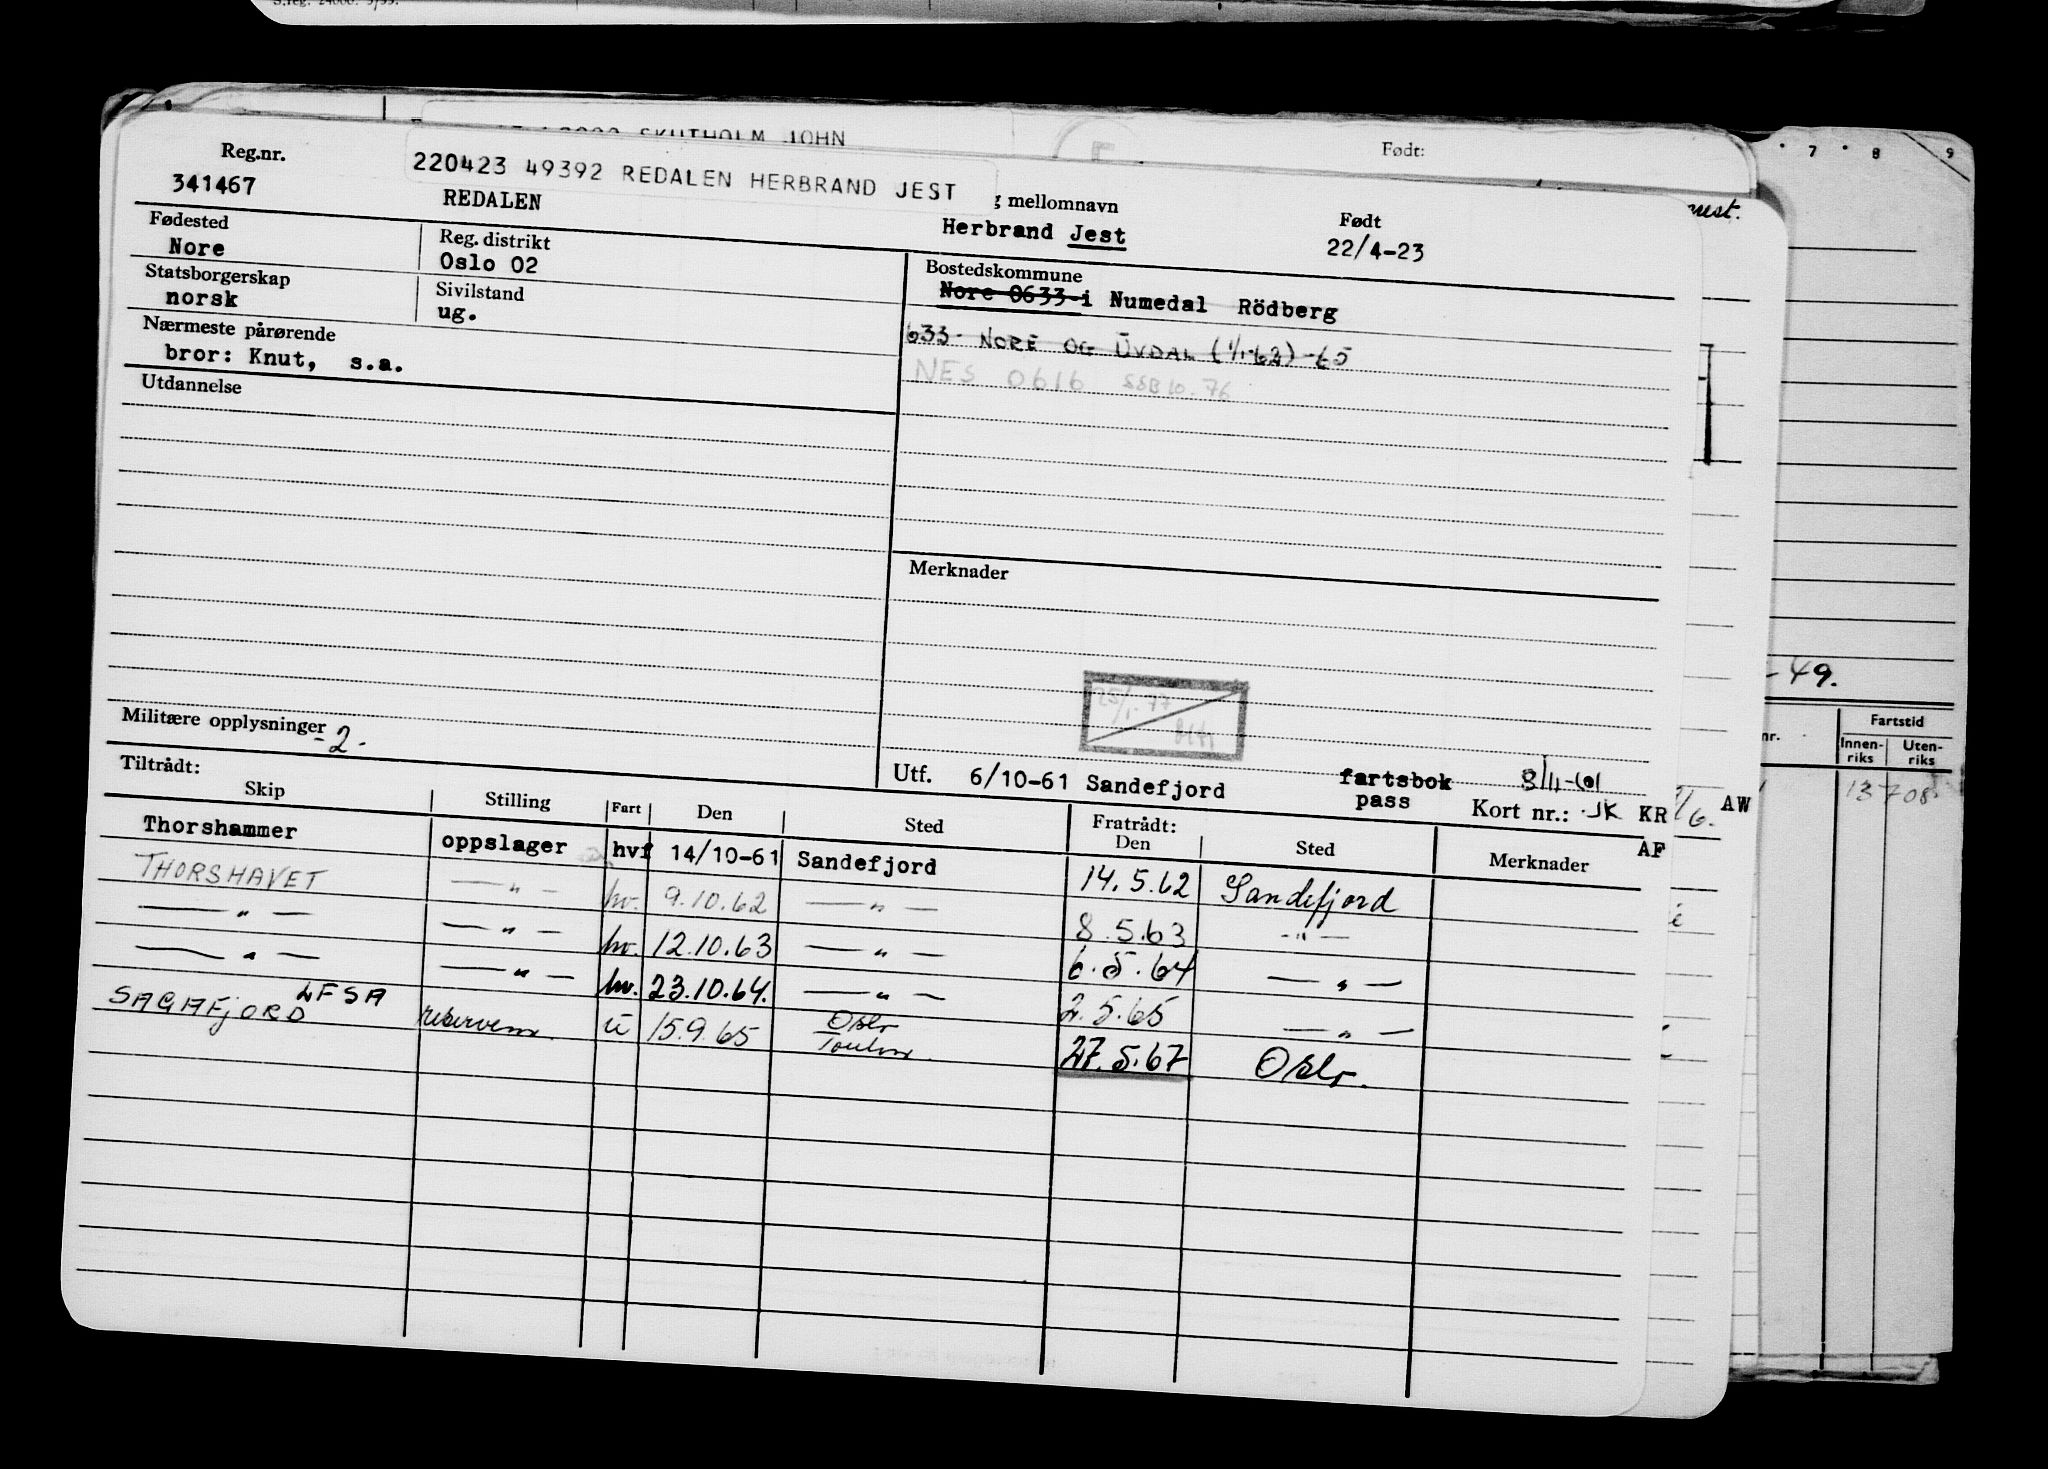 S.reg. 24000. 5/55.
SKUTHOLM JOHN
Født:
7 8 9
Reg.nr.
341467
220423 49392 REDALEN HERBRAND JEST
REDALEN
mellomnavn
Herbrand Jest
Født
22/4-23
Fødested
Nore
Reg. distrikt
Oslo 02
Bostedskommune
Nore 0633-i Numedal Rödberg
Statsborgerskap
norsk
Sivilstand
ug.
633- NORE OG UVDAL (1/1-62)-65
Nærmeste pårørende
bror: Knut, s.a.
NES 0616 SSB 10.76
Utdannelse
Merknader
25/1.77
-49.
Militære opplysninger
-2.
Utf. 6/10-61 Sandefjord
fartsbok
pass
8/11-61
Kort nr.: JK KR
AW
AF
Fartstid
nr. Innen-riks Uten-riks
13 708
Tiltrådt:
Skip Stilling Fart Den Sted Fratrådt: Den Sted Merknader
Thorshammer oppslager hvf 14/10-61 Sandefjord 14.5.62 Sandefjord
THORSHAVET —"— hv. 9.10.62 —"— 8.5.63 -"-
—"— —"— hv. 12.10.63 —"— 6.5.64 —"—
—"— —"— hv. 23.10.64. —"— 2.5.65 —"—
SAGAFJORD LFSA reservem. u 15.9.65 Oslo Toulon 27.5.67 Oslo.